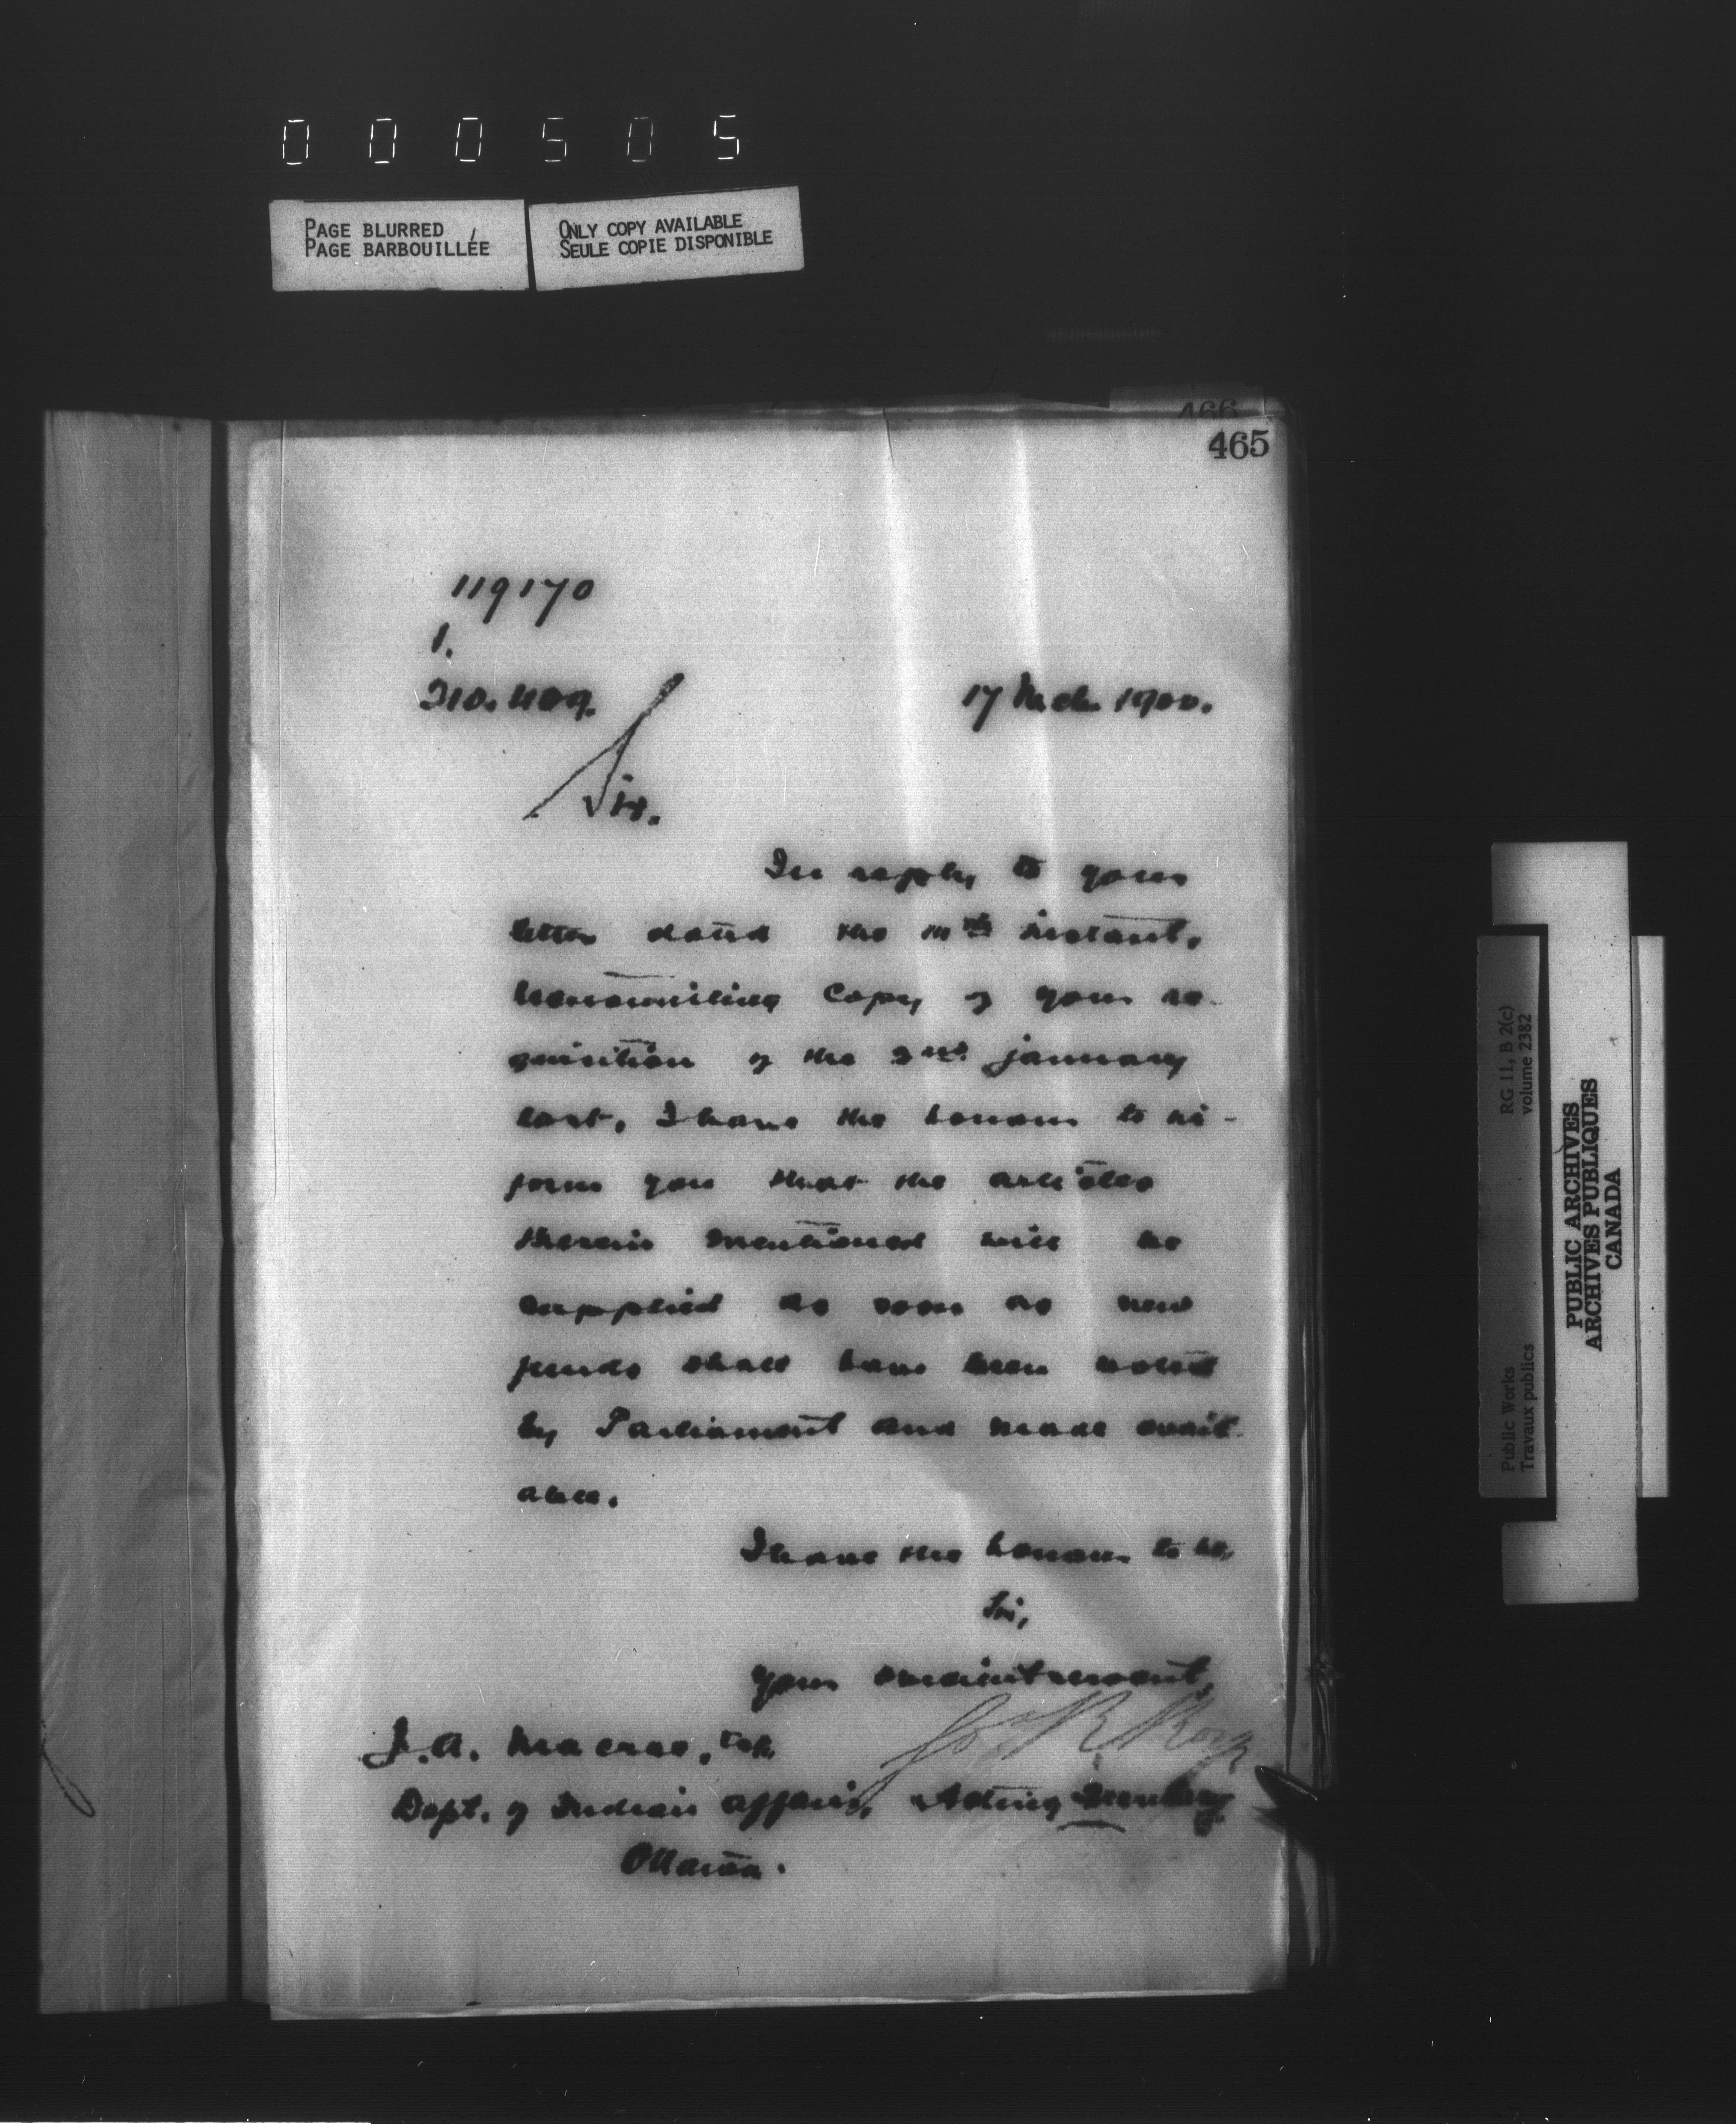 000505
PAGE BLURRED
PAGE BARBOUILLÉE
ONLY COPY AVAILABLE
SEULE COPIE DISPONIBLE
466
465
119170
1.
17 Mch 1900.
Sir,
In reply to your
letter dated the instant,
transmitting copy of your re-
quisition of the 2nd January
last, I have the honour to in-
form you that the articles
therein mentioned will be
supplied as soon as new
funds shall have been voted
by Parliament and made avail-
able.
I have the honour to be,
Sir,
Your obedient servant,
J. A. Macrae, Esq.
Dept. of Indian Affairs, Acting Secretary
Ottawa.
RG 11, B 2(c)
volume 2382
Public Works
Travaux publics
PUBLIC ARCHIVES
ARCHIVES PUBLIQUES
CANADA